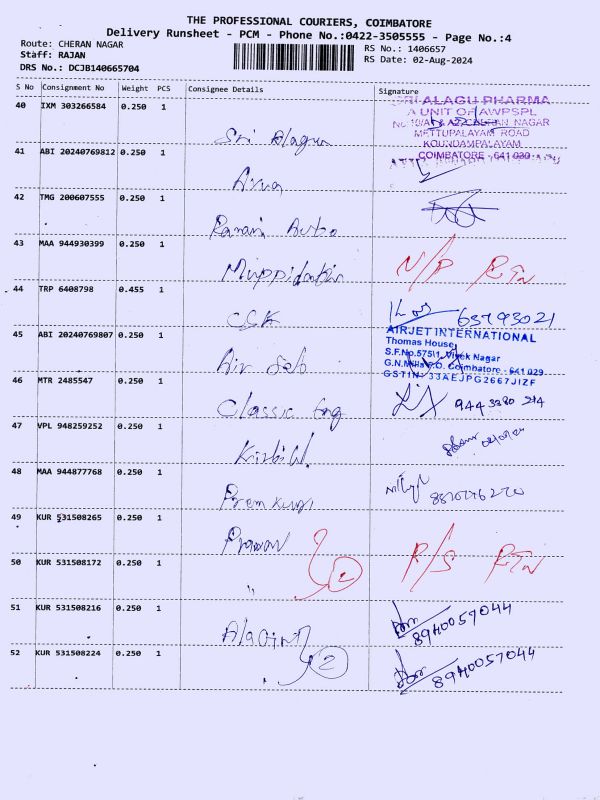 THE PROFESSIONAL COURIERS, COIMBATORE
Delivery Runsheet - PCM - Phone No.:0422-3505555 - Page No.:4
Route: CHERAN NAGAR
RS No.: 1406657
Staff: RAJAN
RS Date: 02-Aug-2024
DRS No.: DCJB140665704
S No Consignment No Weight PCS Consignee Details Signature
40 IXM 303266584 0.250 1
SRI ALAGU PHARMA
A UNIT OF AWPSPL
NAGAR
METTUPALAYAM ROAD
KOUNDAMPALAYAM,
COIMBATORE - 641 030
Sri Alagu
41 ABI 20240769812 0.250 1
42 TMG 200607555 0.250 1
Ranani Auto
43 MAA 944930399 0.250 1
Muppidathi
N/P RTN
44 TRP 6408798 0.455 1
CSK
63793021
45 ABI 20240769807 0.250 1
AIRJET INTERNATIONAL
Thomas House,
S.F.No.575\1, Vivek Nagar
G.N.Mills P.O. Coimbatore - 641 029
GSTIN: 33AEJPG2667J1ZF
Air
46 MTR 2485547 0.250 1
Classic Eng
944 3380 214
47 VPL 948259252 0.250 1
48 MAA 944877768 0.250 1
Prem
49 KUR 531508265 0.250 1
Pravan
R/S RTN
50 KUR 531508172 0.250 1
"
2
51 KUR 531508216 0.250 1
8940057044
52 KUR 531508224 0.250 1
2
8940057044